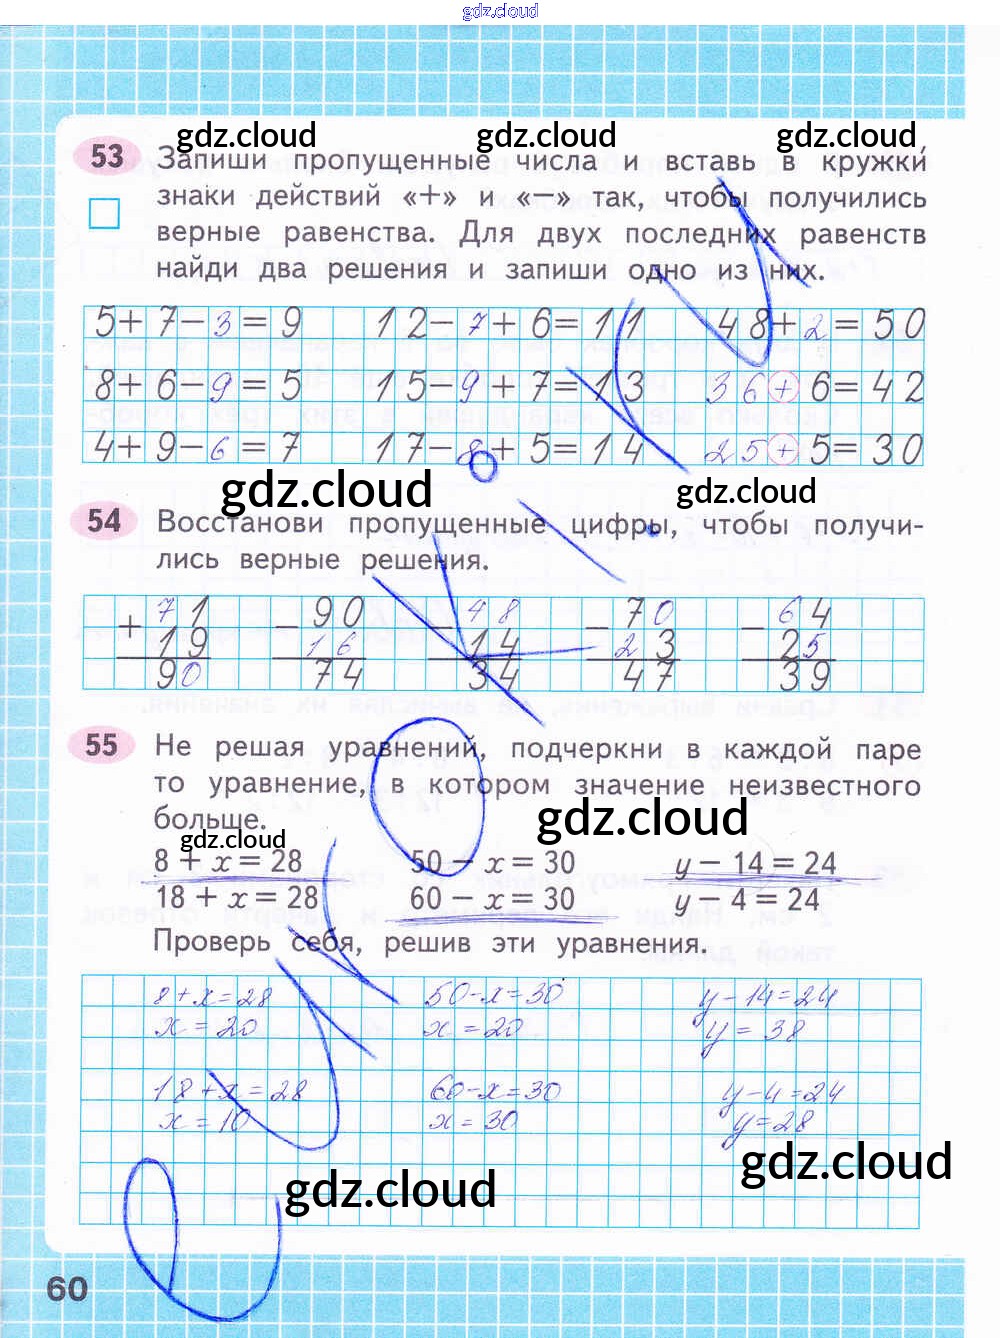 gdz.cloud
gdz.cloud gdz.cloud gdz.cloud
53 Запиши пропущенные числа вставь в кружки
знаки действий «+» и «−» так, чтобы получились
верные равенства. Для двух последних равенств
найди два решения и запиши одно из них.
5+7−3=9 12−7+6=11 48+2=50
8+6−9=5 15−9+7=13 36+6=42
4+9−6=7 17−8+5=14 25+5=30
gdz.cloud gdz.cloud
54 Восстанови пропущенные цифры, чтобы получи-
лись верные решения.
71 90 48 70 64
+ − − − −
19 16 14 23 25
90 74 34 47 39
55 Не решая уравнений, подчеркни в каждой паре
то уравнение, в котором значение неизвестного
больше.
gdz.cloud gdz.cloud
8 + x = 28 50 − x = 30 y − 14 = 24
18 + x = 28 60 − x = 30 y − 4 = 24
Проверь себя, решив эти уравнения.
8+x=28 50-x=30 y-14=24
x=20 x=20 y=38
18+x=28 60-x=30 y-4=24
x=10 x=30 y=28
gdz.cloud gdz.cloud
60